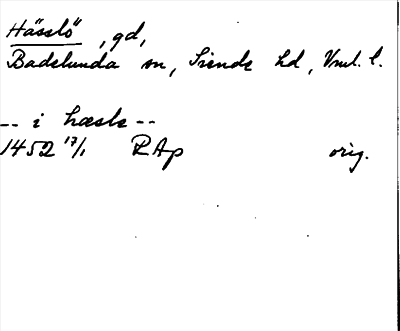 Hässlö, gd,
Badelunda sn, Siende hd, Vml. l.
-- i hæsle --
1452 17/1 RAp orig.